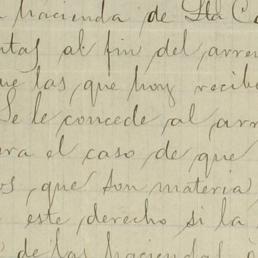 hacienda de Sta Ca
ntas al fin del arren
ue las, que hoy recib
Se le concede al arr
ara el caso de que
os, que son materia
este derecho si la
de las haciendas